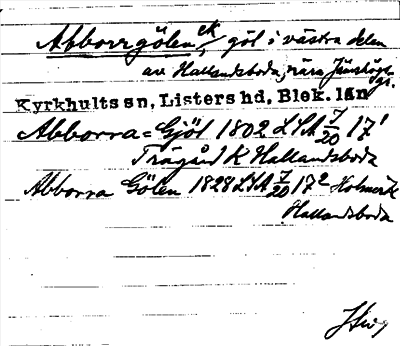 Abborrgölen, ek göl i västra delen
av Hallandsboda, nära Jämshögs
gr.
Kyrkhults sn, Listers hd, Blek. län
Abborra= Gjöl 1802 LSA 7/20 17¹
Trägård K Hallandsboda
Abborra Gölen 1828 LSA 7/20 17²
Hallandsboda